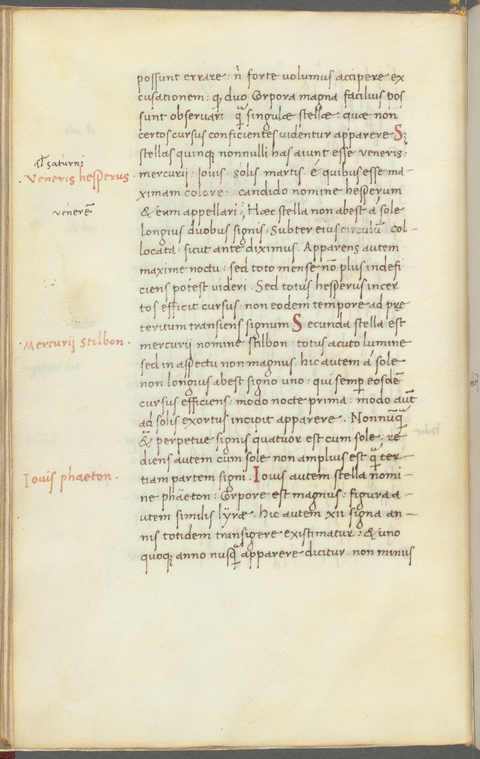 possunt errare: ñ forte volumus accipere ex
cusationem: q; duo Corpora magna facilius pos
sunt observari: q̃ singulæ stellæ: quæ non
certos cursus conficientes videntur apparere. S;
stellas quinq; nonnulli has aiunt esse veneris:
al' saturni
mercurij: Iovis: solis martis: é quibus esse ma-
Veneris hesperus.
ximam colore candido nomine hesperum
& eam appellari; Hæc stella non abest á sole
venerẽ
longius duobus signis: Subter eius circulũ col-
locata: sicut ante diximus. Apparens autem
maxime noctu: sed toto mense nõ plus indefi
ciens potest videri. Sed totus hesperus incer
tos efficit cursus: non eodem tempore ad prę
teritum transiens signum. Secunda stella est
mercurij nomine stilbon: totus acuto lumine
Mercurij Stilbon.
sed in aspectu non magnus: hic autem á sole
non longius abest signo uno: qui semp eosdẽ
cursus efficiens: modo nocte prima: modo aut̃
ad solis exortus incipit apparere. Nonnũq̃
& perpetue signis quatuor est cum sole: re
diens autem cum sole non amplius est q̃ ter-
tiam partem signi. Iovis autem stella nomi-
Iovis phaeton.
ne phaeton: Corpore est magnus: figura a-
utem similis lyræ. hic autem xii signa an-
nis totidem transigere existimatur: & uno
quoq; anno nusq̃ apparere dicitur non minus